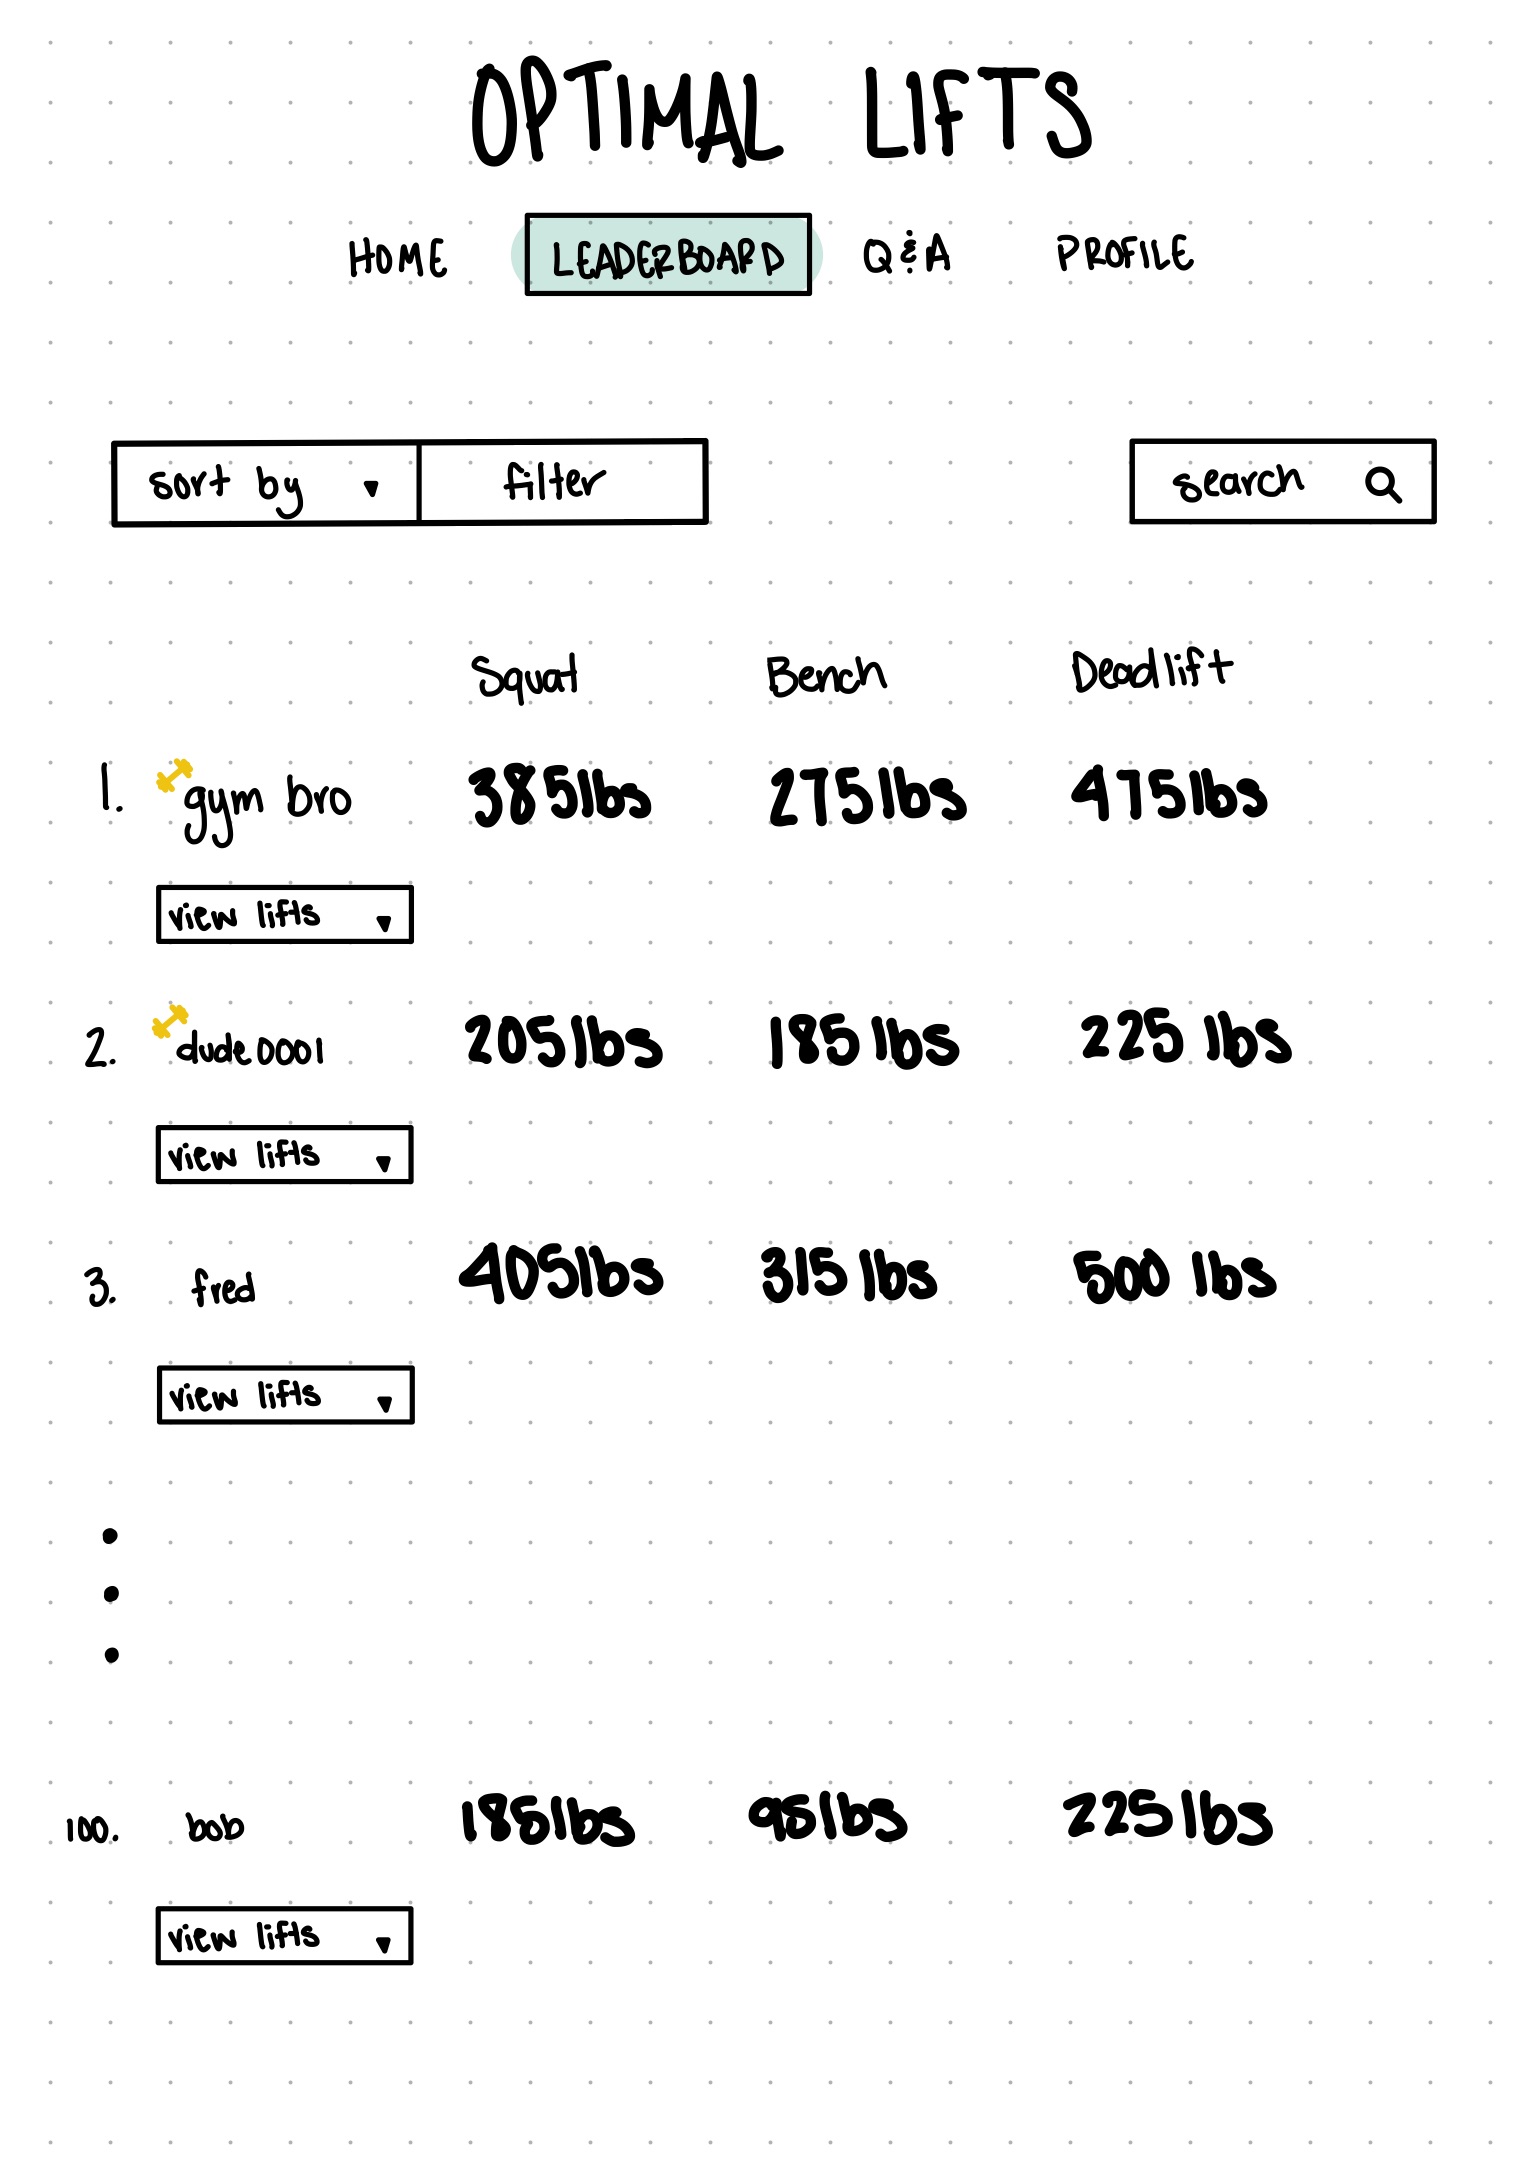 OPTIMAL LIFTS
HOME LEADERBOARD Q & A PROFILE
sort by filter search
Squat Bench Deadlift
1. gym bro 385lbs 275lbs 475lbs
view lifts
2. dude0001 205lbs 185 lbs 225 lbs
view lifts
3. fred 405lbs 315 lbs 500 lbs
view lifts
100. bob 185lbs 95lbs 225lbs
view lifts